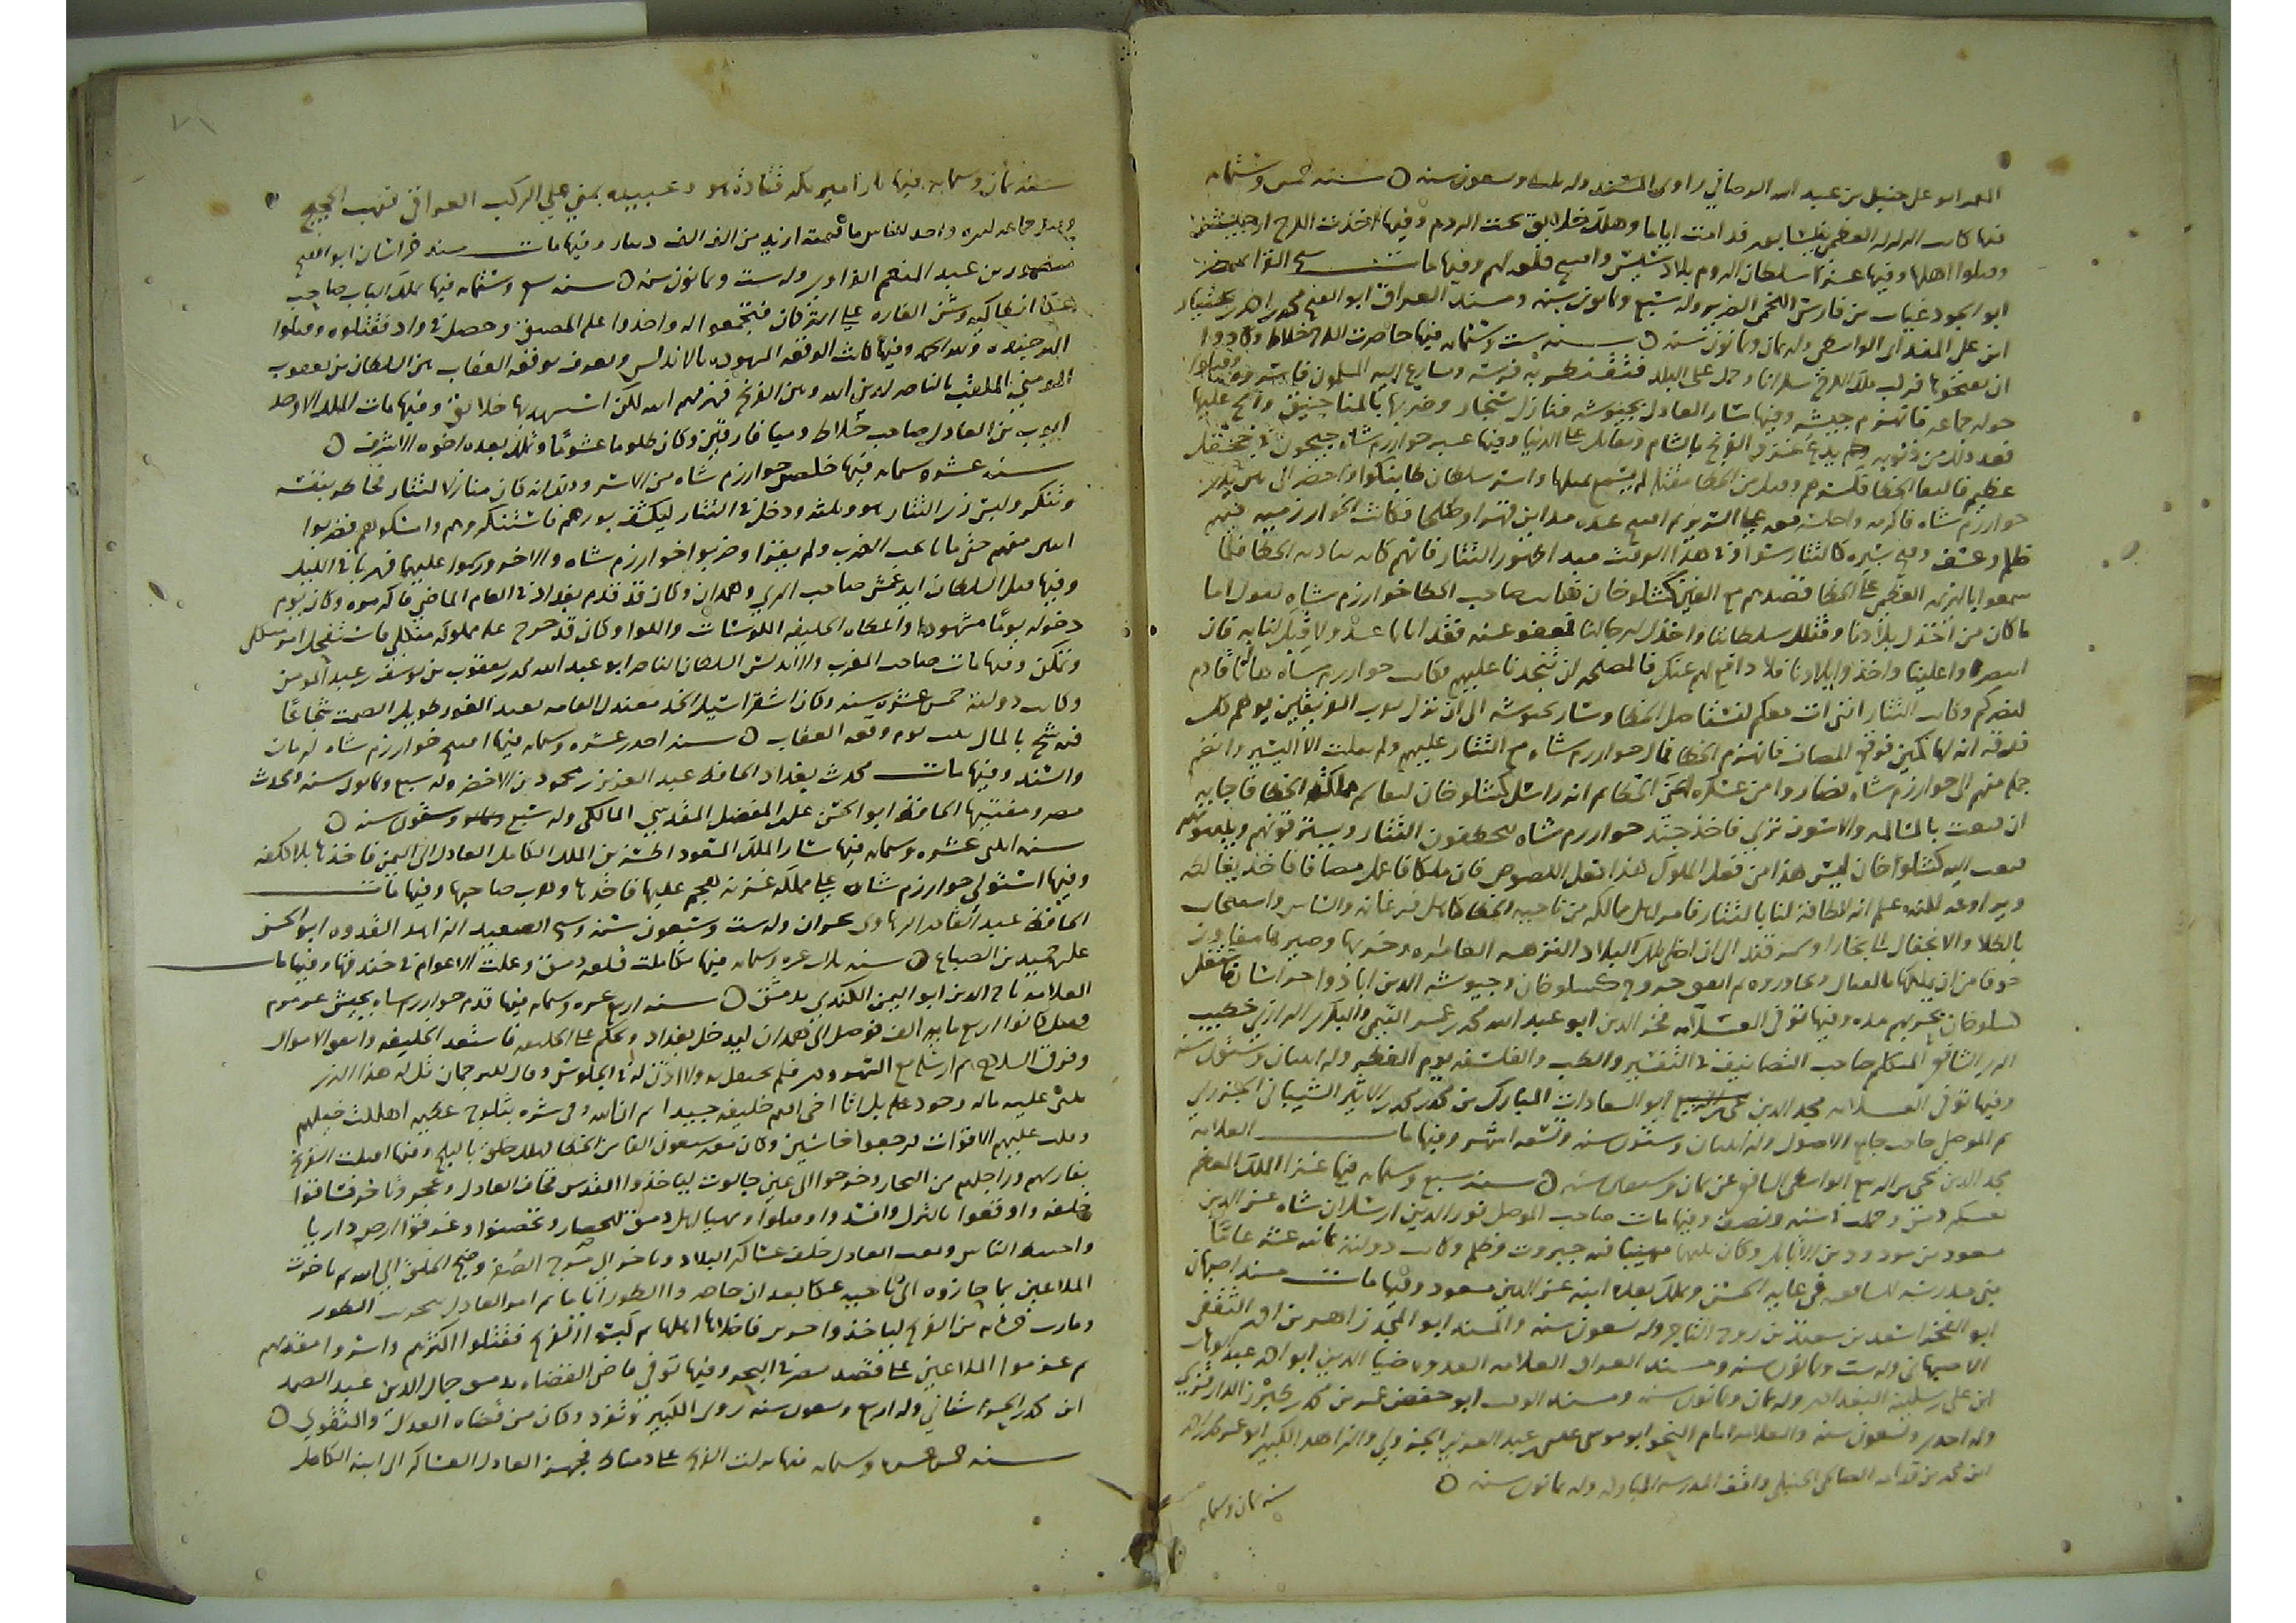 المعمر ابو علي حنبل بن عبد الله الرصافي راوي المسند وله وسعون سنه سنه خمس وستمائه
فيها كانت الزلزله العظمى بنيسابور فدامت اياما وهلك خلايق تحت الردم وفيها اخذت الكرج ارجيش
وقتلوا اهلها وفيها غزا سلطان الروم بلاد سيس وافتتح قلعه لهم وفيها مات شيخ القرا بمصر
ابو الجود غياث بن فارس اللخمي الضرير وله سبع وثمانون سنه ومسند العراق ابو الفتح محمد بن احمد بن بختيار
ابن علي المندائي الواسطي وله ثمان وثمانون سنه سنه ست وستمائه فيها حاصرت الكرج خلاط وكادوا
ان يفتحوها فركب ملك الكرج سكرانا وحمل على البلد فتقنطر به فرسه وسارع اليه المسلمون فاسروه وقتلوا
حوله جماعه فانهزم جيشه وفيها سار العادل بجيوشه فنازل سنجار وضربها بالمناجنيق والح عليها
فعد ذلك من ذنوبه ولم يدع غزو الفرنج بالشام ويقاتل على الدنيا وفيها عبر خوارزم شاه جيحون في جحفل
عظيم فالتقا الخطا فكسرهم وقتل من الخطا مقتله لم يسمع بمثلها واسر سلطان طاينكوا واحضر الى بين يدي
خوارزم شاه فاكرمه واجلسه معه على السرير ثم افتتح عده مداين قهرا وصلحا فكانت الخوارزميه فيهم
ظلم وعسف كالتتار سوا وفي هذا الوقت مبدا ظهور التتار فانهم كان بادى الخطا فلما
سمعوا بالهزيمه العظمى على الخطا قصدوهم مع القين كشلوخان فكاتب صاحب الخطا خوارزم شاه يقول اما
ما كان من اخذك بلادنا وقتلك سلطاننا واخذك لرجالنا فمعفو عنه فقد اتانا عدو لا قبل لنا به فان
انتصروا علينا واخذوا بلادنا فلا دافع لهم عنك فالمصلحه ان تنجدنا عليهم فكاتب خوارزم شاه هااناقادم
لنصركم وكاتب التتار انني ات معكم لنستاصل الخطا وسار بجيوشه الى ان نزل بقرب الفريقين يوهم كل
فرقه انه لها كمين فوقع المصاف فانهزم الخطا فمال خوارزم شاه مع التتار عليهم ولم يفلت الا اليسير وانضم
جمع منهم الى خوارزم شاه فصاروا من عسكره اعني الخطا ثم انه راسل كشلوخان ليقاسمه مملكه الخطا فاجابه
ان قنعت بالمسالمه والا سوف ترى فاخذ جند خوارزم شاه يتخطفون التتار ويسترقونهم
فبعث اليه كشلوا خان ليس هذا من فعل الملوك هذا فعل اللصوص فان كنت ملكا فاعمل مصافا فاخذ يغالطه
ويراوغه لكنه علم انه لاطاقه لنا بالتتار فامر اهل ممالكه من ناحيه الخطا كاهل فرغانه والشاش واسفيجاب
بالجلا والانجفال الى بخارا وسمرقند الى ان اخلى تلك البلاد النزهه العامره وخربها وصيرها مفاوز
خوفا من ان يملكها التتار ويجاوروه ثم اتفق خروج جنكزخان وجيوشه الذين ابادوا خراسان فاشتغل
كشلوخان بحربهم مده وفيها توفى العلامه فخر الدين ابو عبد الله محمد بن عمر التيمي البكري الرازي ابن خطيب
الري الشافعي المتكلم صاحب التصانيف في التفسير والطب والفلسفه يوم الفطر وله اثنتان وستون سنه
وفيها توفى العلامه مجد الدين ابو السعادات المبارك بن محمد بن محمد بن الاثير الشيباني الجزري
ثم الموصلي صاحب جامع الاصول وله اثنتان وستون سنه وتسعه اشهر وفيها مات العلامه
مجد الدين يحيى بن الربيع الواسطي الشافعي عن ثمان وسبعين سنه سنه سبع وستمائه فيها غزا الملك المعظم
بعسكر دمشق وفيها مات صاحب الموصل نور الدين ارسلان شاه بن عز الدين
مسعود بن مودود بن الاتابك وكان مهيبا فيه جبروت وظلم وكانت دولته ثمانيه عشر عاما
بنى مدرسه للشافعيه في غايه الحسن وتملك بعده ابنه عز الدين مسعود وفيها مات مسند اصبهان
ابو الفخر اسعد بن سعيد بن روح التاجر وله تسعون سنه والمسند ابو المجد زاهر بن احمد الثقفي
الاصبهاني وله ست وثمانون سنه ومسند العراق العلامه القدوه ضيا الدين ابو احمد عبد الوهاب
ابن علي بن سكينه البغدادي وله ثمان وثمانون سنه ومسند الوقت ابو حفص عمر بن محمد بن طبرزد الدارقزي
وله احدى وتسعون سنه والعلامه امام النحو ابو موسى عيسى بن عبد العزيز الجزولي والزاهد الكبير ابو عمر محمد بن احمد
ابن محمد بن قدامه الصالحي الحنبلي واقف المدرسه المباركه وله ثمانون سنه
سنه ثمان وستمائه
٧١
سنه ثمان وستمائه فيها ثار امير مكه قتاده هو وعبيده بمنى على الركب العراقي فنهب الحجيج
وقتل جماعه وراح للناس ما قيمته ازيد من الف الف دينار وفيها مات مسند خراسان ابو الفتح
منصور بن عبد المنعم الفراوي وله ست وثمانون سنه سنه تسع وستمائه فيها تملك الباب صاحب
عكا انطاكيه وشن الغاره على التركمان فتجمعوا له واخذوا عليه المضيق وحصل في واد فقتلوه وقتلوا
اكثر جنوده ولله الحمد وفيها كانت الوقعه المشهوده بالاندلس وتعرف بوقعه العقاب بين السلطان بن يعقوب
المومني الملقب بالناصر لدين الله وبين الفرنج فهزمهم الله لكن استشهد بها خلايق وفيها مات الملك الاوحد
ايوب بن العادل صاحب خلاط وميافارقين وكان ظلوما غشوما وتملك بعده اخوه الاشرف
سنه عشر وستمائه فيها خلص خوارزم شاه من الاسر وذلك انه كان منازلا لتتار فخاطر بنفسه
وتنكر ولبس زي التتار هو وثلاثه ودخل في التتار ليكشف امورهم فاستنكروهم وامسكوهم فضربوا
اثنين منهم حتى ماتا تحت الضرب ولم يقرا وضربوا خوارزم شاه والاخر ورسموا عليهما فهربا في الليل
وفيها قتل السلطان ايدغمش صاحب الري وهمدان وكان قد قدم بغداد في العام الماضي فاكرموه وكان يوم
دخوله يوما مشهودا واعطاه الخليفه الكوسات واللوا وكان قد خرج عليه مملوكه منكلي فاستفحل امر منكلي
وتمكن وفيها مات صاحب المغرب والاندلس السلطان الناصر ابو عبد الله محمد بن يعقوب بن يوسف بن عبد المومن
وكانت دولته خمس عشره سنه وكان اشقر اسيل الخد معتدل القامه بعيد الغور طويل الصمت شجاعا
فيه شح بالمال ثلب يوم وقعه العقاب سنه احدى عشره وستمائه فيها افتتح خوارزم شاه كرمان
والسند وفيها مات محدث بغداد الحافظ عبد العزيز بن محمود بن الاخضر وله سبع وثمانون سنه ومحدث
مصر ومفتيها الحافظ ابو الحسن علي بن المفضل المقدسي المالكي وله سبع وستون سنه
سنه اثنتي عشره وستمائه فيها سار الملك المسعود اقسيس بن الملك الكامل بن العادل الى اليمن فاخذها بلا كلفه
وفيها استولى خوارزم شاه على مملكه غزنه هجم عليها فاخذها وهرب صاحبها وفيها مات
الحافظ عبد القادر الرهاوي بحران وله ست وسبعون سنه وشيخ الصعيد الزاهد القدوه ابو الحسن
علي بن حميد بن الصباغ سنه ثلاث عشره وستمائه فيها تكاملت قلعه دمشق وعملت الاعوام في خندقها وفيها مات
العلامه تاج الدين ابو اليمن الكندي بدمشق سنه اربع عشره وستمائه فيها قدم خوارزم شاه بجيش عرمرم
فقيل كانوا اربع مايه الف فوصل الى همدان ليدخل بغداد ويحكم على الخليفه فاستعد الخليفه وانفق الاموال
وفرق السلاح ثم ارسل مع السهروردي فلم يحتفل به ولا اذن له في الجلوس وقال للترجمان قل له هذا الذي
تثني عليه ما له وجود علي بل انا اخى اقيم خليفه جيدا ثم ان الله وفى شره بثلوج عظيمه اهلكت خيلهم
وقلت عليهم الاقوات فرجعوا خاسئين وكان معه سبعون الفا من الخطا فهلك خلق بالثلج وفيها اقبلت الفرنج
بفارسهم وراجلهم من البحار وخرجوا الى عين جالوت لياخذوا القدس فخاف العادل وعجز وتاخر فساقوا
خلفه واوقعوا بالترك وافسدوا وقتلوا وتهيا اهل دمشق للحصار وتحصنوا وغرقوا ارض داريا
واختبط الناس وبعث العادل خلف عساكر البلاد وتاخر الى مرج الصفر وضج الخلق الى الله ثم تاخرت
الملاعين بما حازوه الى ناحيه عكا بعد ان حاصروا الطور اياما ثم امر العادل بتخريب الطور
وسارت خمس مايه من الفرنج لياخذوا جزين فاخلاها اهلها ثم كبسوا الفرنج فقتلوا اكثرهم واسروا مقدمهم
ثم عزموا الملاعين على قصد مصر في البحر وفيها توفى قاضي القضاه بدمشق جمال الدين عبد الصمد
ابن محمد الحرستاني وله اربع وتسعون سنه روى الكثير وتفرد وكان من قضاه العدل والتقوى
سنه خمس عشره وستمائه فيها نزلت الفرنج على دمياط فجهز العادل العساكر الى ابنه الكامل